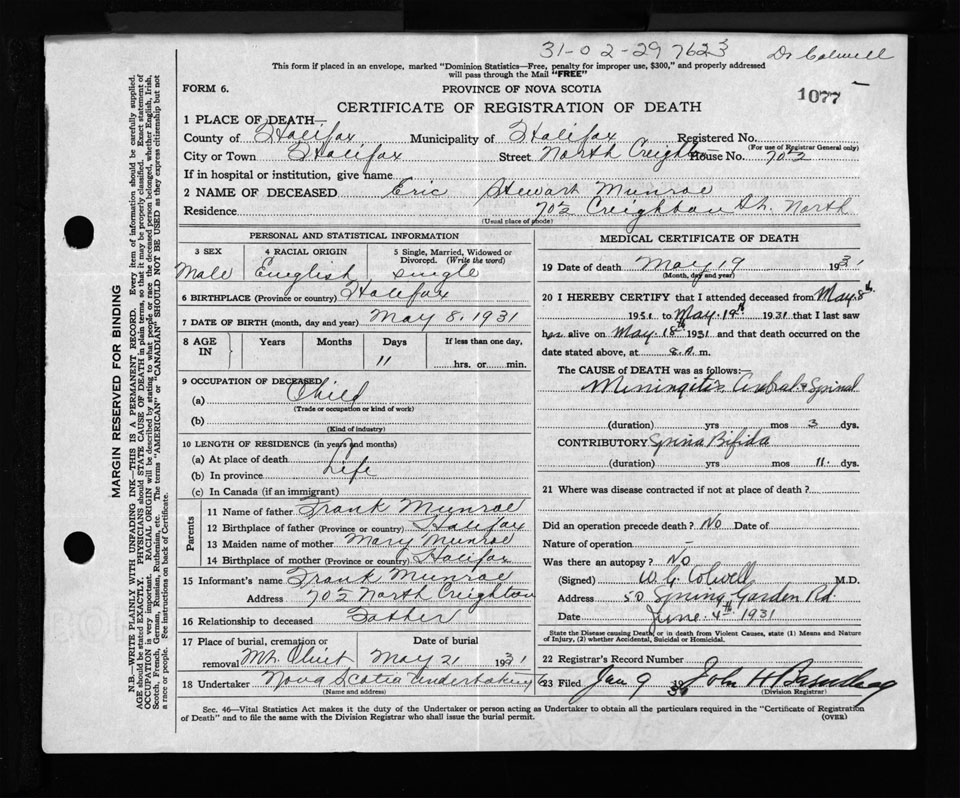 31-02-29 7623 Dr Colwell
This form if placed in an envelope, marked "Dominion Statistics—Free, penalty for improper use, $300," and properly addressed
will pass through the Mail "FREE"
FORM 6.
PROVINCE OF NOVA SCOTIA
1077
CERTIFICATE OF REGISTRATION OF DEATH
1 PLACE OF DEATH—
County of Halifax Municipality of Halifax Registered No.
(For use of Registrar General only)
City or Town Halifax Street North Creighton House No. 70½
If in hospital or institution, give name
2 NAME OF DECEASED Eric Stewart Munroe
Residence 70½ Creighton St. North
(Usual place of abode)
PERSONAL AND STATISTICAL INFORMATION
3 SEX 4 RACIAL ORIGIN 5 Single, Married, Widowed or
Divorced. (Write the word)
Male English single
6 BIRTHPLACE (Province or country) Halifax
7 DATE OF BIRTH (month, day and year) May 8, 1931
8 AGE IN Years Months Days If less than one day,
11 hrs. or min.
9 OCCUPATION OF DECEASED
(a) Child
(Trade or occupation or kind of work)
(b)
(Kind of industry)
10 LENGTH OF RESIDENCE (in years and months)
(a) At place of death
(b) In province Life
(c) In Canada (if an immigrant)
Parents
11 Name of father Frank Munroe
12 Birthplace of father (Province or country) Halifax
13 Maiden name of mother Mary Munroe
14 Birthplace of mother (Province or country) Halifax
15 Informant's name Frank Munroe
Address 70½ North Creighton
16 Relationship to deceased Father
17 Place of burial, cremation or Date of burial
removal Mt. Olivet May 21 1931
18 Undertaker Nova Scotia Undertaking Co
(Name and address)
MEDICAL CERTIFICATE OF DEATH
19 Date of death May 19 1931
(Month, day and year)
20 I HEREBY CERTIFY that I attended deceased from May 8th
1931 to May 19th 1931 that I last saw
h alive on May 18th 1931 and that death occurred on the
date stated above, at m.
The CAUSE OF DEATH was as follows:
Miningitis Spinal
(duration) yrs mos 3 dys.
CONTRIBUTORY Spina Bifida
(duration) yrs mos 11 dys.
21 Where was disease contracted if not at place of death?
Did an operation precede death? No Date of
Nature of operation —
Was there an autopsy? No
(Signed) W. G. Colwell M.D.
Address 50 Spring Garden Rd.
Date June 4th 1931
State the Disease causing Death, or in death from Violent Causes, state (1) Means and Nature
of Injury, (2) whether Accidental, Suicidal or Homicidal.
22 Registrar's Record Number
23 Filed Jan 9 John H
(Division Registrar)
Sec. 46—Vital Statistics Act makes it the duty of the Undertaker or person acting as Undertaker to obtain all the particulars required in the "Certificate of Registration
of Death" and to file the same with the Division Registrar who shall issue the burial permit.
(OVER)
MARGIN RESERVED FOR BINDING
N.B.—WRITE PLAINLY WITH UNFADING INK—THIS IS A PERMANENT RECORD. Every item of information should be carefully supplied.
AGE should be stated EXACTLY. PHYSICIANS should STATE CAUSE OF DEATH in plain terms, so that it may be properly classified. Exact statement of
OCCUPATION is very important. RACIAL ORIGIN will be described by stating to what people or race the deceased person belonged, whether English, Irish,
Scotch, French, German, Russian, Ruthenian, etc. The terms "AMERICAN" or "CANADIAN" SHOULD NOT BE USED as they express citizenship but not
a race or people. See instructions on back of Certificate.